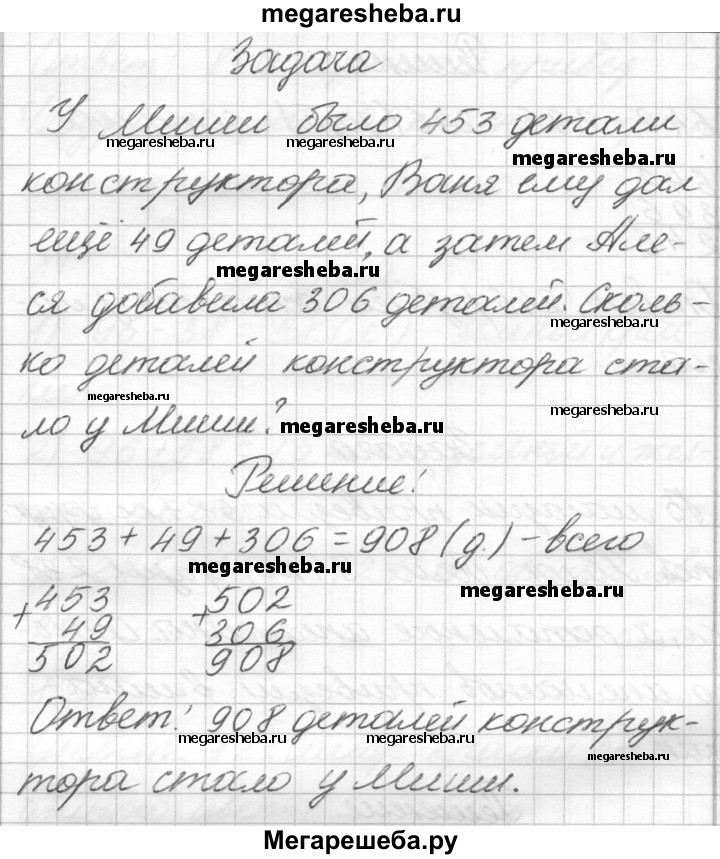 megaresheba.ru
Задача
У Миши было 453 детали
megaresheba.ru megaresheba.ru megaresheba.ru
конструктора, Ваня ему дал
ещё 49 деталей, а затем Але-
megaresheba.ru
ся добавила 306 деталей. Сколь-
megaresheba.ru
ко деталей конструктора ста-
megaresheba.ru megaresheba.ru
ло у Миши?
megaresheba.ru
Решение:
453 + 49 + 306 = 908 (д.) - всего
megaresheba.ru
+ 453 + 502
49 306
502 908
Ответ: 908 деталей конструк-
megaresheba.ru megaresheba.ru megaresheba.ru
тора стало у Миши.
Мегарешеба.ру